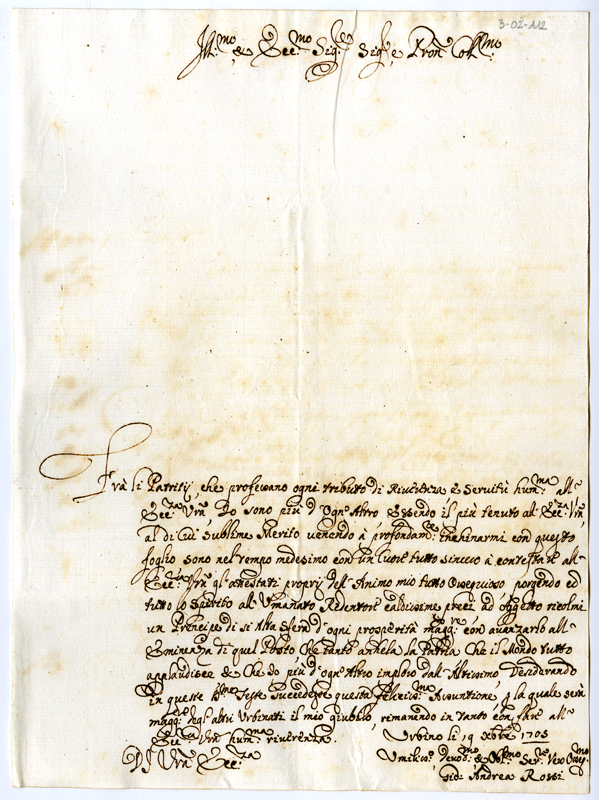 3-02-112
Ill.mo & Ecc.mo Sig.r Sig.r e Pron Coll.mo
Frà li Patritij, che professano ogni tributo di Riverenza è Servitù hum.ma all'
Ecc.za Vrã, Io sono più d'ogn'Altro, essendo il più tenuto all' Ecc.za Vrã
al di cui sublime Merito venendo à profondam.te inchinarmi con questo
foglio sono nel tempo medesimo con un Cuore tutto sincero à contestare all'
Ecc.za Vrã gl'attestati proprij dell'Animo mio tutto Ossequioso, porgendo con
tutto lo Spirito all'Umanato Redentore caldissime preci ad oggetto ricolmi
un Prencipe di sì Alta Sfera d'ogni prosperità magg.re con avanzarlo all'
Eminenza di quel Posto Che tanto anhela la Patria, Che il Mondo tutto
applaudisce & Che Io più d'ogn'Altro imploro dall'Altissimo Desiderando
in queste S.me Feste succedesse questa feliciss.ma Assuntione, p la quale serà
magg.re degl'altri Urbinati il mio giubilo, rimanendo in tanto con fare all'
Ecc.za Vrã hum.ma riverenza.
Urbino li 9 Xbre 1705
Di Vrã Ecc.za
Umiliss.o Devot.mo & Obl.mo Ser.re Vero Osseq.mo
Gio: Andrea Rossi